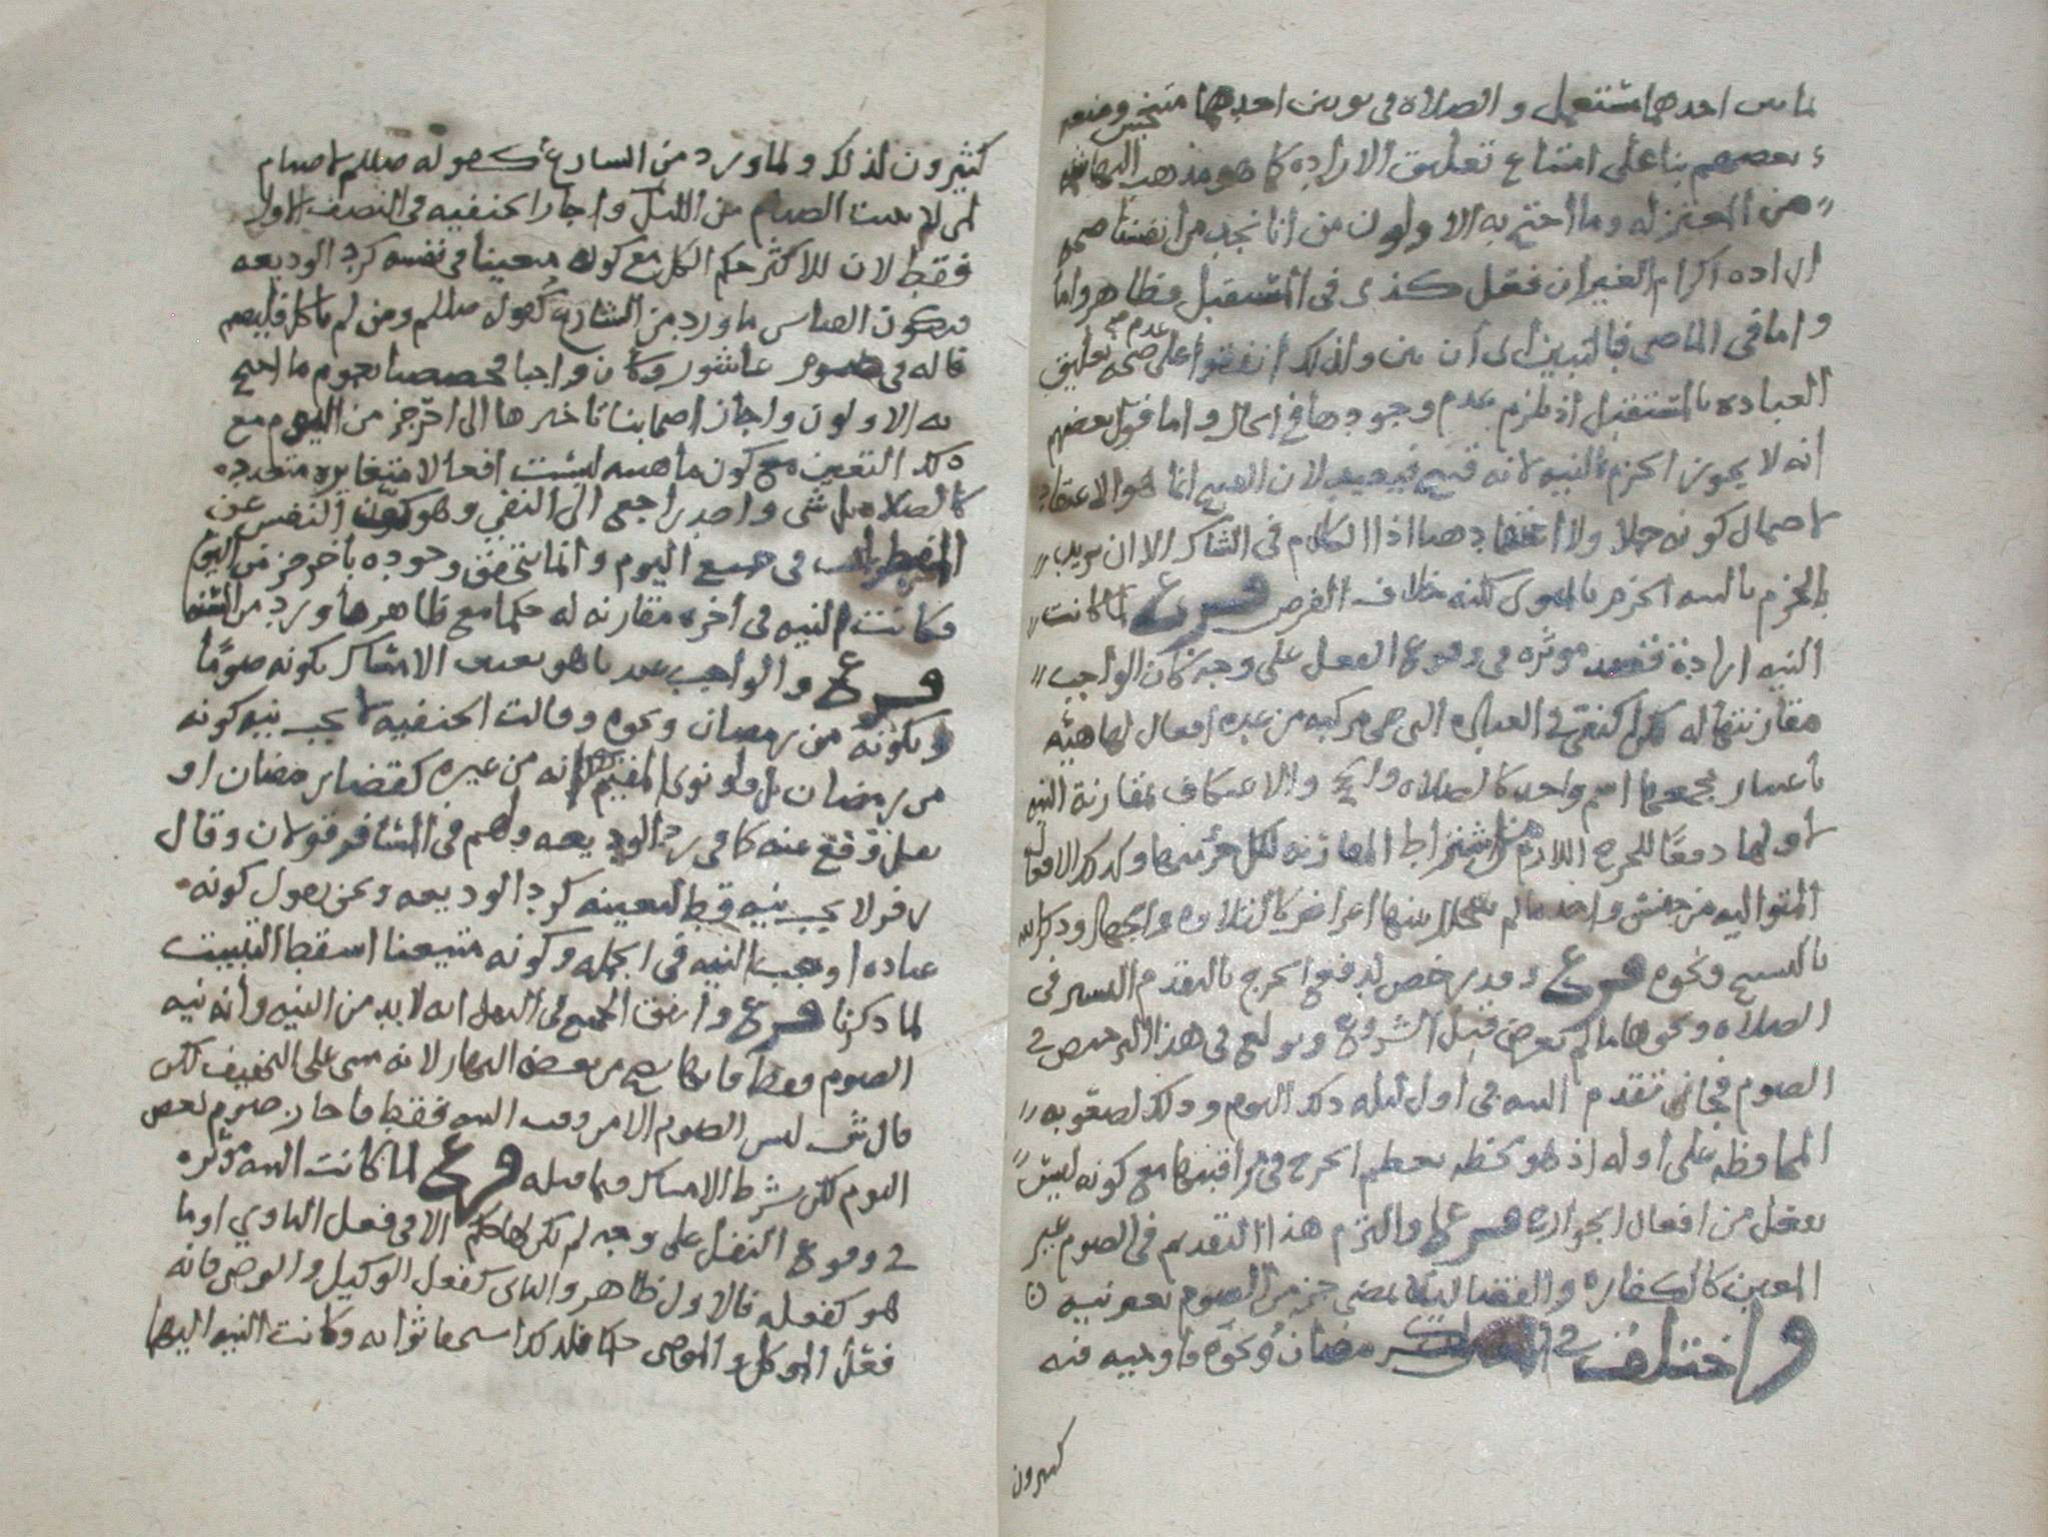 لماس احدهما مشتعمل والصلاه فى ثوبين احدهما متنجس ومنعه
بعضهم بنا على امتناع تعليق الاراده كما هو مذهب البهاشمه
من المعتزله وما احتج به الاولون من انا نجد من انفسنا صحه
اراده اكرام الغير ان فعل كذى فى المستقبل فظاهر واما
واما فى الماضى فبالتبيين اى ان تبين ولذلك اتفقوا على عدم صحه تعليق
العباده بالمستقبل اذ يلزم عدم وجودها فى الحال واما قول بعضهم
انه لا يجوز الجزم بالنيه لانه قبيح فبعيد لان القبيح انما هو الاعتقاد
لاحتمال كونه جهلا ولا اعتقاد هنا اذ الكلام فى الشاك الا ان يريد
بالجزم بالنيه الجزم بالمنوى لكنه خلاف الفرض فرع لما كانت
النيه اراده مؤثره فى وقوع الفعل على وجه كان الواجب
مقارنتها له لكن اكتفى فى العباده التى هى مركبه من عده افعال لها هيئه
باعتبار مجموعها اسم واحد كالصلاه والحج والاعتكاف بمقارنة النيه
لاولها دفعًا للحرج اللازم من اشتراط المقارنه لكل جزء منها وكذلك الافعال
المتواليه من جنس واحد ما لم يتخلل بينها اعراض كالتلاوه والجهاد وذكر الله
بالتسبيح ونحوه فرع وقد رخص لدفع الحرج بالتقدم اليسير فى
الصلاه ونحوها ما لم يعرض قبل الشروع وتوسع فى هذا الترخيص فى
الصوم فجاز تقدم النيه فى اول ليله ذلك اليوم وذلك لصعوبه
المحافظه على اوله اذ هو لحظه يعظم الحرج فى مراقبتها مع كونه ليس
بفعل من افعال الجوارح فرع والتزم هذا التقديم فى الصوم غير
المعين كالكفاره والقضا ليلا يمضى جز من الصوم بغير نيه
واختلف فى رمضان ونحوه فاوجبه فيه
كثيرون
كثيرون لذلك ولما ورد من الشارع كقوله صللم لا صيام
لمن لم يبيت الصيام من الليل واجاز الحنفيه فى النصف الاول
فقط لان للاكثر حكم الكل مع كونه معينا فى نفسه كرد الوديعه
فيكون القياس ما ورد من الشارع كقوله صللم ومن لم ياكل فليصم
قاله فى صوم عاشور وكان واجبا مخصصا بعموم ما احتج
به الاولون واجاز اصحابنا تاخيرها الى اخر جز من اليوم مع
ذلك التعين مع كون ماهيته ليست افعالا متغايره متعدده
كالصلاه بل شى واحد راجع الى النفى وهو كفّ النفس عن
المفطرات فى جميع اليوم وانما يتحقق وجوده باخر جز من اليوم
فكانت النيه فى اخره مقارنه له حكما مع ظاهر ما ورد من السنه
فرع والواجب عندنا هو تعيين الامساك بكونه صومًا
وبكونه من رمضان ونحوه وقالت الحنفيه لا يجب نيه كونه
من رمضان بل ولو نوى المقيم انه من غيره كقضا رمضان او
نفل وقع عنه كما فى رد الوديعه ولهم فى المسافر قولان وقال
زفر لا يجب نيه قط لتعينه كرد الوديعه ونحن نقول كونه
عباده اوجب النيه فى الجمله وكونه متعينا اسقط التبييت
لما ذكرنا فرع واتفق الجميع فى النفل انه لا بد من النيه وانه نيه
الصوم فقط وانها تصح من بعض النهار لانه مبنى على التخفيف لكن
قال ش ليس الصوم الا من وقت النيه فقط فاجاز صوم بعض
اليوم لكن بشرط الامساك فيما قبله فرع لما كانت النيه مؤثره
فى وقوع الفعل على وجه لم يكن لها حكم الا فى فعل الناوي او ما
هو كفعله فالاول ظاهر والثانى كفعل الوكيل والوصى فانه
فعل الموكل والموصى حكما فلذلك استحقا ثوابه وكانت النيه اليهما